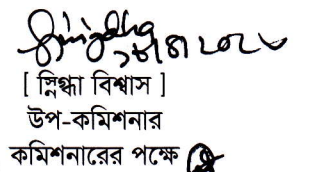 [ স্নিগ্ধা বিশ্বাস ]
উপ-কমিশনার
কমিশনারের পক্ষে